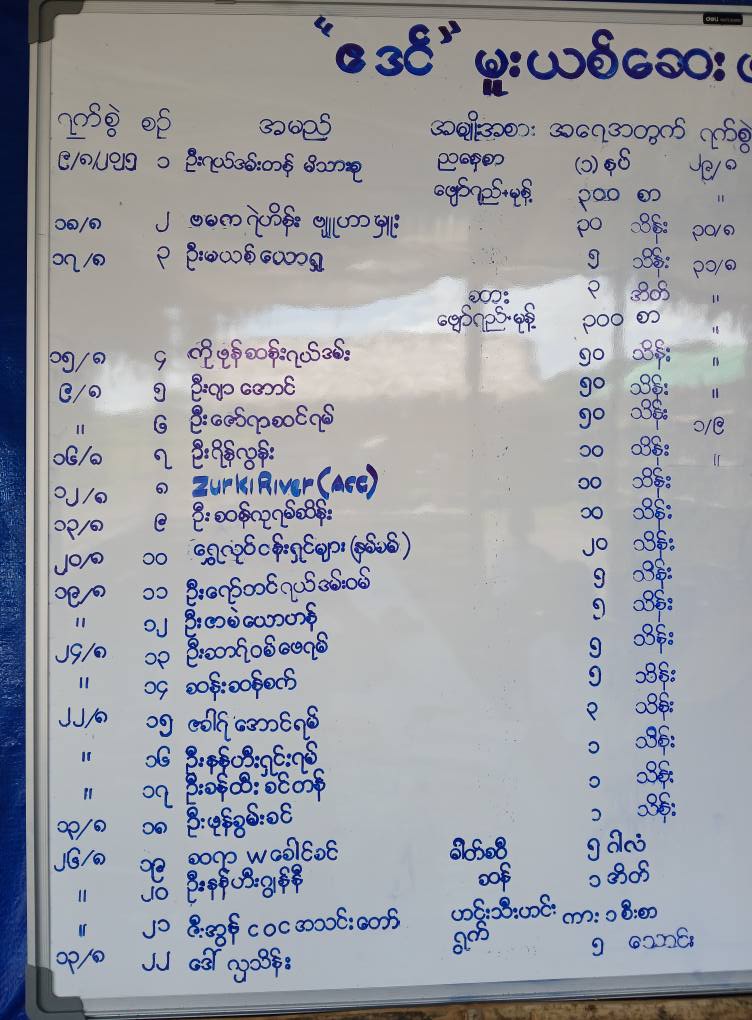 "ဧဒင်" မူးယစ်ဆေး
ရက်စွဲ စဉ် အမည် အမျိုးအစား အရေအတွက် ရက်စွဲ
၉/၈/၂၀၂၅ ၁ ဦးရယ်ဒမ်းတန် မိသားစု ညနေစာ (၁) နပ် ၂၉/၈
ဖျော်ရည်+မုန့် ၃၀၀ စာ "
၁၈/၈ ၂ ဗမကရဲဟိန်း ဗျူဟာမှူး ၃၀ သိန်း ၃၀/၈
၁၇/၈ ၃ ဦးမယစ်ယောရှု ၅ သိန်း ၃၁/၈
ဆား ၃ အိတ် "
ဖျော်ရည်+မုန့် ၃၀၀ စာ "
၁၅/၈ ၄ ကိုဖုန်ဆန်းရယ်ဒမ်း ၅၀ သိန်း "
၉/၈ ၅ ဦးဂျာအောင် ၅၀ သိန်း "
" ၆ ဦးဇော်ရာဆင်ရမ် ၅၀ သိန်း ၁/၉
၁၆/၈ ၇ ဦးဂိုန်လွန်း ၁၀ သိန်း "
၁၂/၈ ၈ Zurki River (Acc) ၁၀ သိန်း
၁၃/၈ ၉ ဦးဆန်လုရမ်ဆိန်း ၁၀ သိန်း
၂၀/၈ ၁၀ ရွှေလုပ်ငန်းရှင်များ (နမ်ခမ်) ၂၀ သိန်း
၁၉/၈ ၁၁ ဦးရော်ဘင်ရယ်ဒမ်းဝမ် ၅ သိန်း
" ၁၂ ဦးဇာမဲယောဟန် ၅ သိန်း
၂၄/၈ ၁၃ ဦးဆာဂ်ဝမ်ဖေရမ် ၅ သိန်း
" ၁၄ ဆန်းဆန်စက် ၅ သိန်း
၂၂/၈ ၁၅ ဇခေါဂ်အောင်ရမ် ၃ သိန်း
" ၁၆ ဦးနန်ဟီးရှင်းရမ် ၁ သိန်း
" ၁၇ ဦးခန်ထီးခင်တန် ၁ သိန်း
၁၃/၈ ၁၈ ဦးဖုန်ခွမ်းခင် ၁ သိန်း
၂၆/၈ ၁၉ ဆရာ W ခေါင်ခင် ဓါတ်ဆီ ၅ ဂါလံ
" ၂၀ ဦးနန်ဟီးဂျွန်နီ ဆန် ၁ အိတ်
" ၂၁ ဇီးအွန် COC အသင်းတော် ဟင်းသီးဟင်း ကား ၁ စီးစာ
ရွက်
၁၃/၈ ၂၂ ဒေါ်လှသိန်း ၅ သောင်း